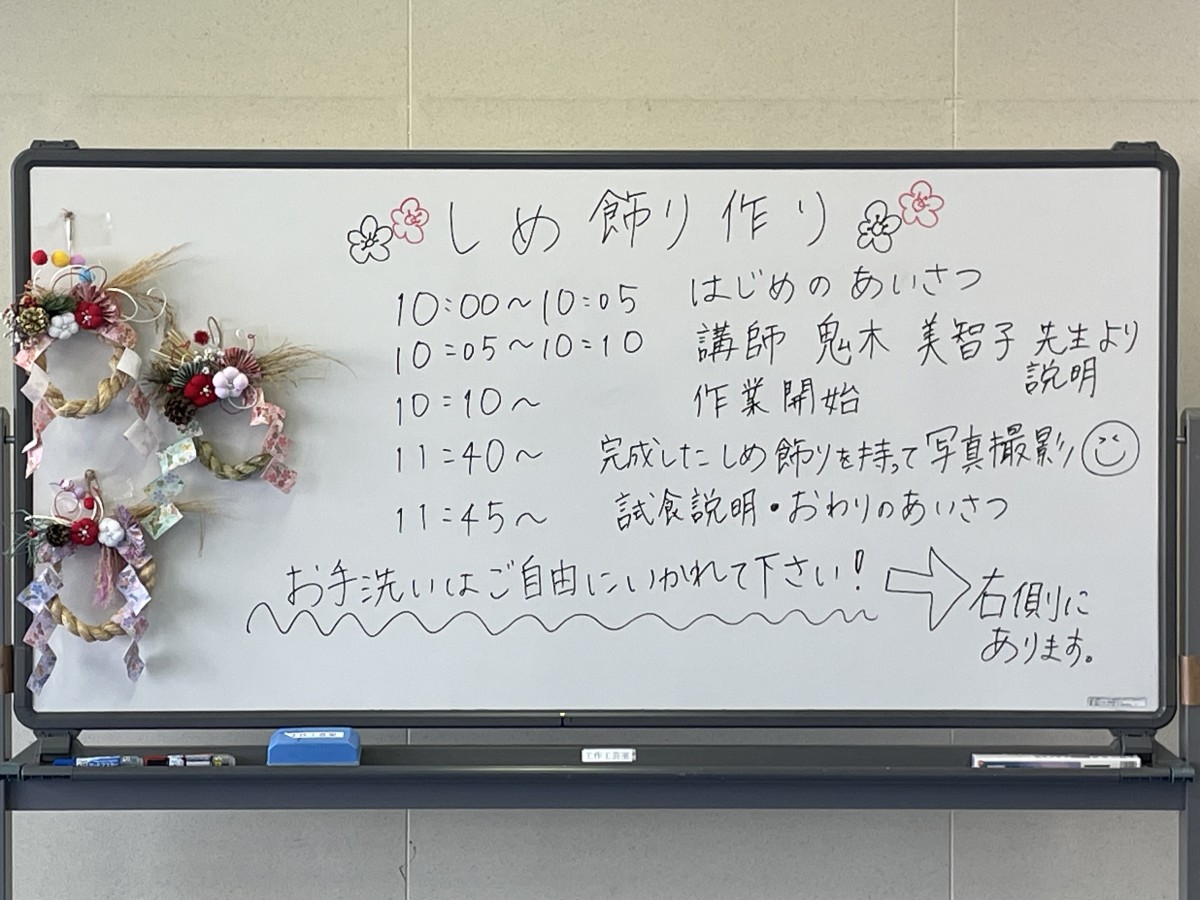 しめ飾り作り
10:00〜10:05 はじめのあいさつ
10:05〜10:10 講師 鬼木 美智子 先生より
説明
10:10〜 作業開始
11:40〜 完成したしめ飾りを持って写真撮影
11:45〜 試食説明・おわりのあいさつ
お手洗いはご自由にいかれて下さい!
右側に
あります。
工作工芸室